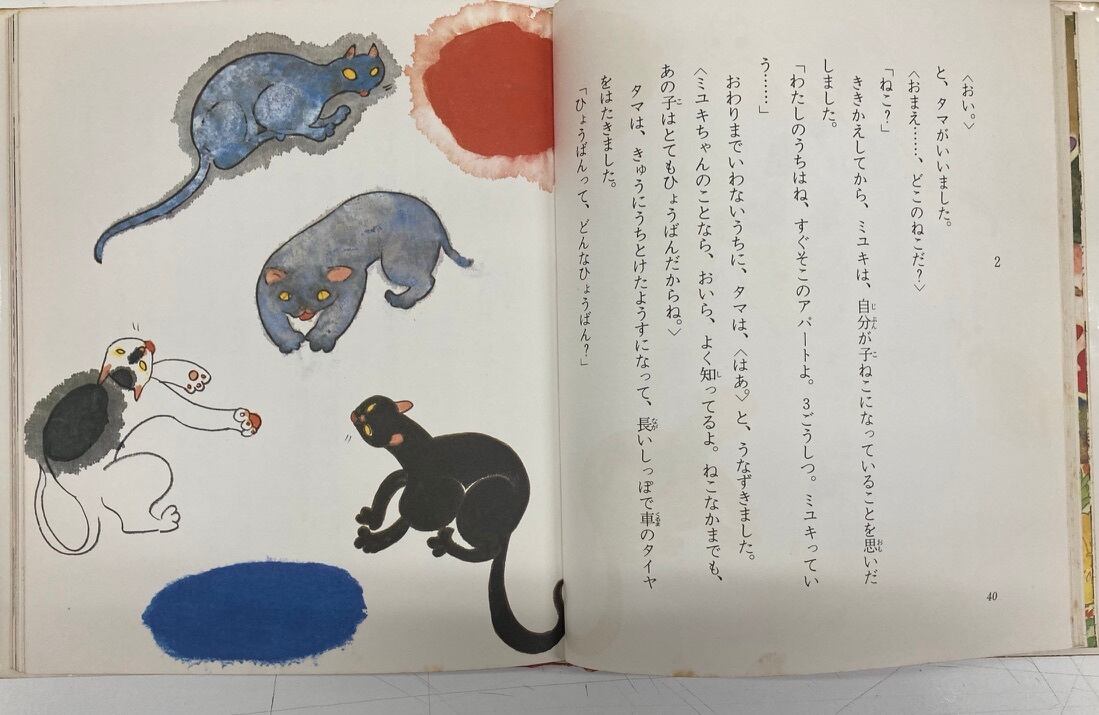 2
〈おい。〉
と、タマがいいました。
〈おまえ……、どこのねこだ?〉
「ねこ?」
ききかえしてから、ミユキは、自分が子ねこになっていることを思いだ
しました。
「わたしのうちはね、すぐそこのアパートよ。3ごうしつ。ミユキってい
う……」
おわりまでいわないうちに、タマは、〈はあ。〉と、うなずきました。
〈ミユキちゃんのことなら、おいら、よく知ってるよ。ねこなかまでも、
あの子はとてもひょうばんだからね。〉
タマは、きゅうにうちとけたようすになって、長いしっぽで車のタイヤ
をはたきました。
「ひょうばんって、どんなひょうばん?」
40